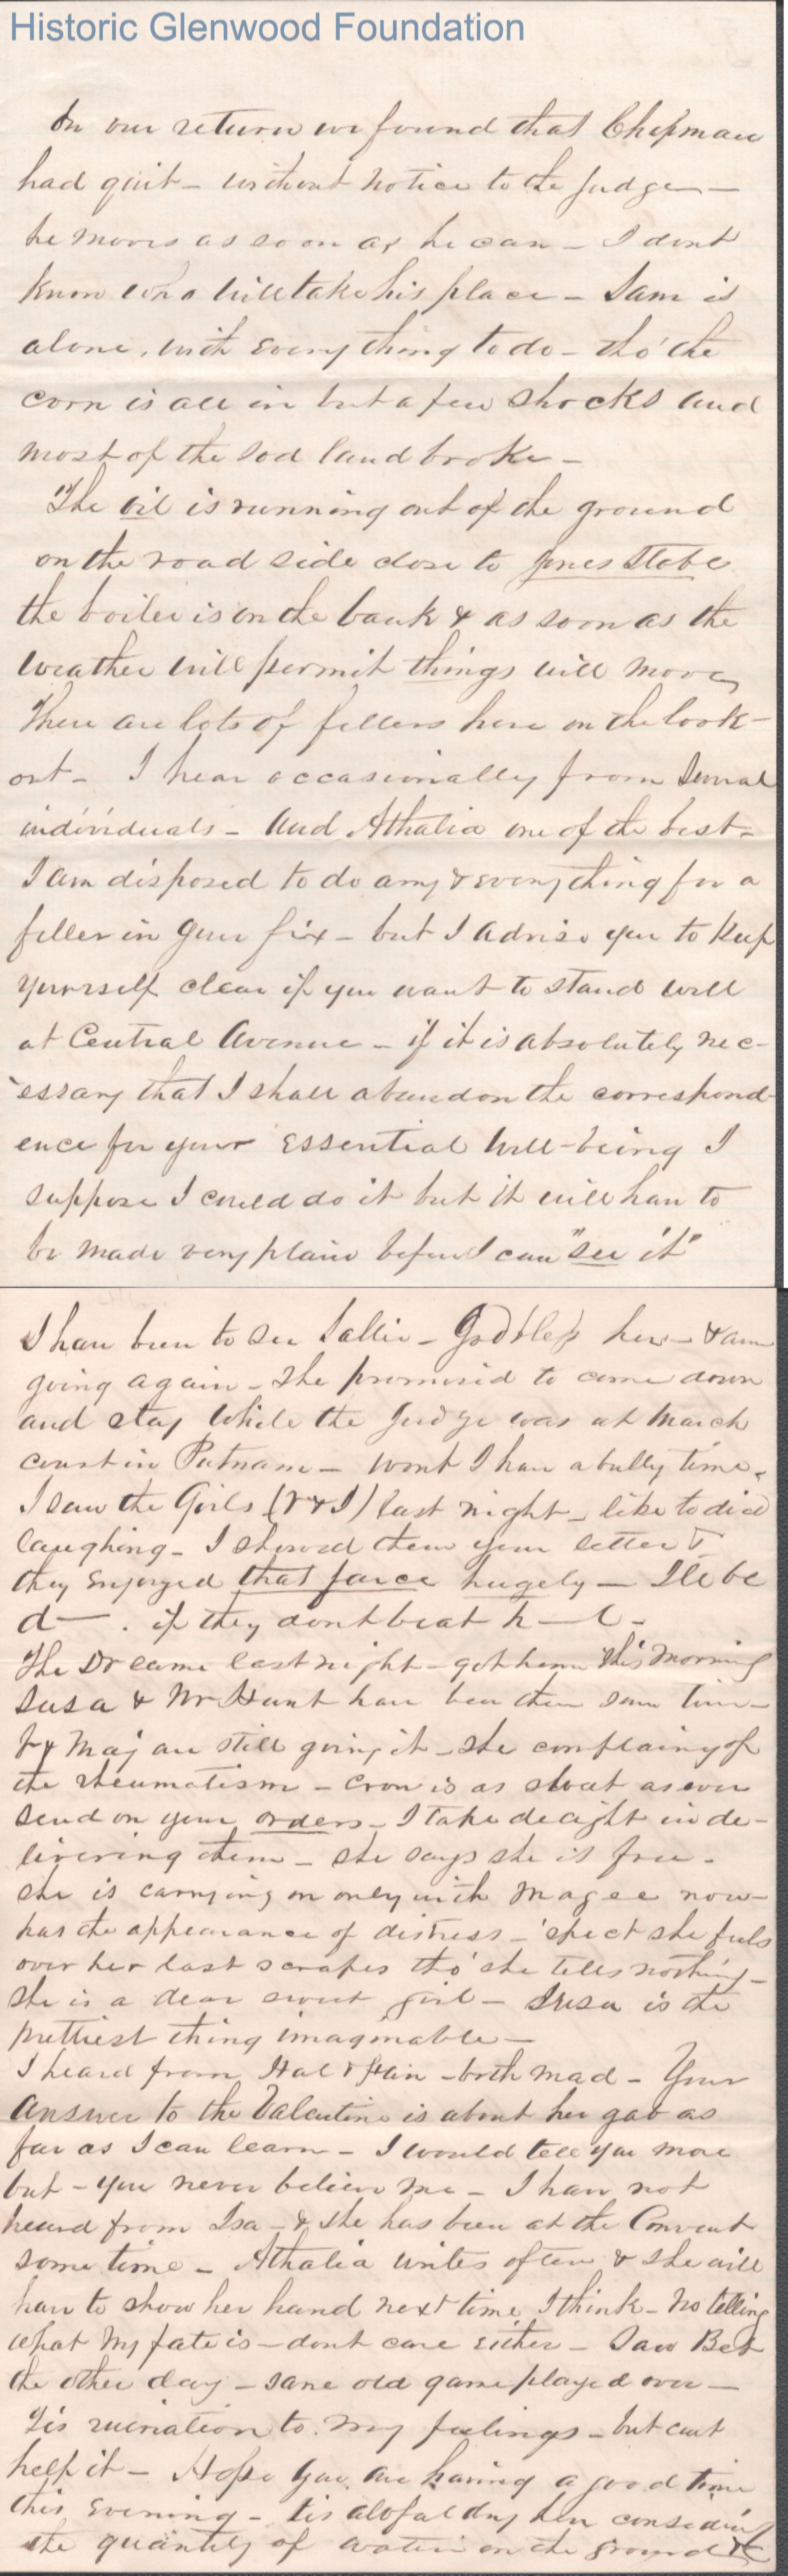 Historic Glenwood Foundation
On our return we found that Chapman
had quit – without notice to the Judge –
he moves as soon as he can – I dont
know who will take his place – Sam is
alone, with everything to do – tho' the
corn is all in but a few shocks and
most of the sod land broke –
The oil is running out of the ground
on the road side close to Jones
the boiler is on the bank & as soon as the
weather will permit things will move,
There are lots of fellers here on the look-
out – I hear occasionally from several
individuals – and Athalia one of the best –
I am disposed to do any & everything for a
feller in your fix – but I advise you to keep
yourself clear if you want to stand well
at Central Avenue – if it is absolutely nec-
essary that I shall abandon the correspond-
ence for your essential well-being I
suppose I could do it but it will have to
be made very plain before I can "see it"
I have been to see Sallie – God bless her – & am
going again – She promised to come down
and stay while the Judge was at March
court in Putnam – wont I have a bully time.
I saw the Girls last night – like to died
laughing – I showed them your letter &
they enjoyed that farce hugely – Ile be
d—. if they dont beat h—l –
The Dr came last night – got home this morning
Susa & Mr Hunt have been there some time –
& Maj are still going it – She complains of
the rheumatism – Crow is as as ever
send on your orders – I take delight in de-
livering them – she says she is free –
she is carrying on only with Magee now –
has the appearance of distress – 'spect she feels
over her last scrapes tho' she tells nothing –
She is a dear sweet girl – Susa is the
prettiest thing imaginable –
I heard from Hal & – both mad – Your
answer to the Valentine is about her gab as
far as I can learn – I would tell you more
but – you never believe me – I have not
heard from Isa – & she has been at the Convent
some time – Athalia writes often & she will
have to show her hand next time I think – No telling
what my fate is – dont care either – Saw Bet
the other day – same old game played over –
Tis ruination to my feelings – but cant
help it – Hope you are having a good time
this Evening – tis considering
the quantity of water on the ground &c